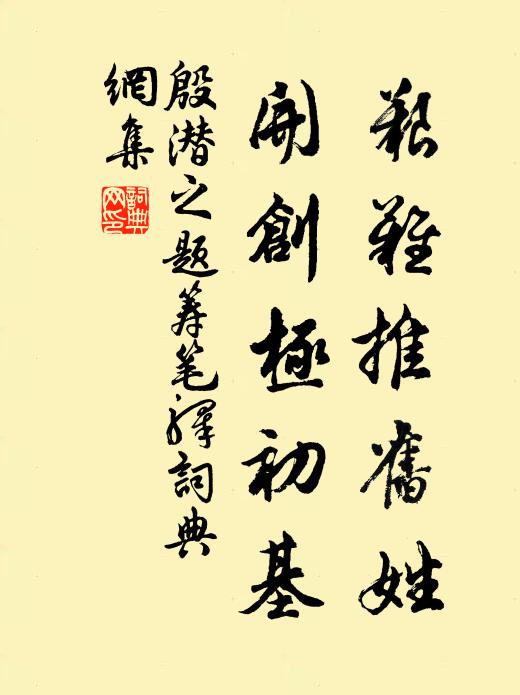 艱難推舊姓
開創極初基
殷潛之題筹笔驛詞典
網集
詞典
网印